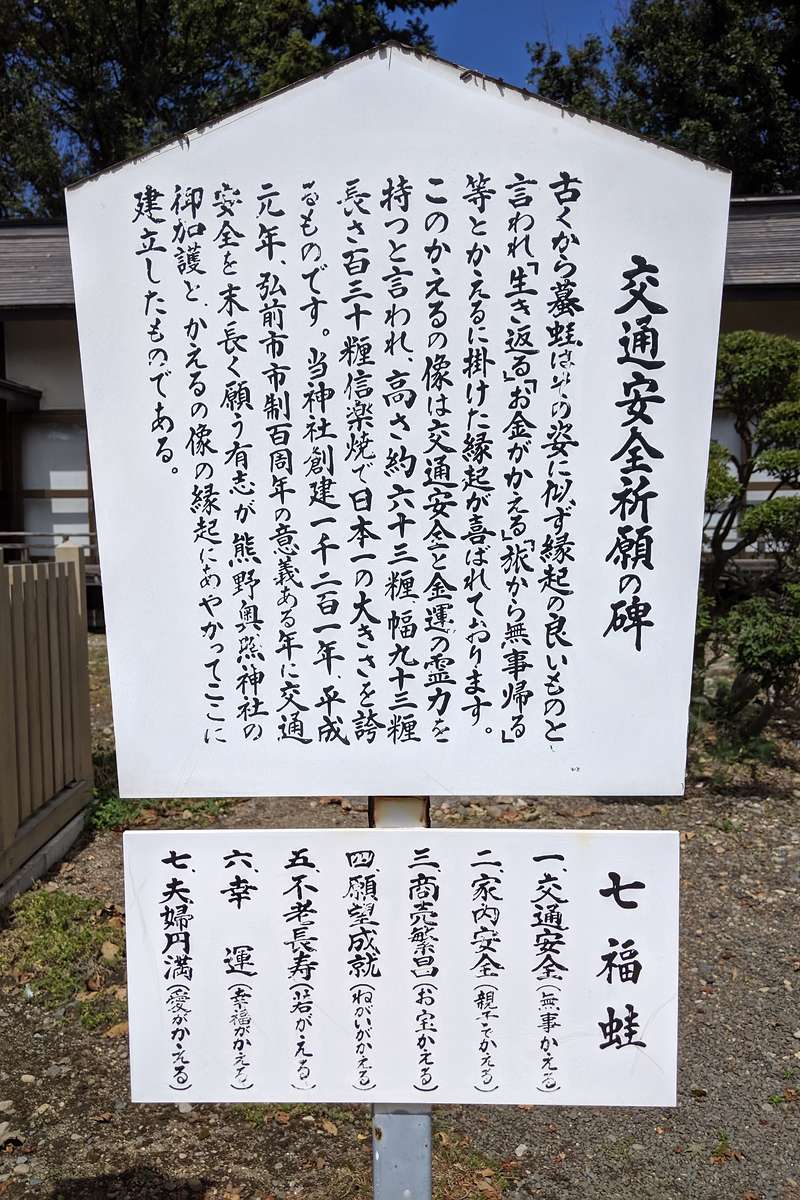 交通安全祈願の碑
古くから蟇蛙はその姿に似ず縁起の良いものと
言われ「生き返る」「お金がかえる」「旅から無事帰る」
等とかえるに掛けた縁起が喜ばれております。
このかえるの像は交通安全と金運の霊力を
持つと言われ、高さ約六十三糎、幅九十三糎
長さ百三十糎信楽焼で日本一の大きさを誇
るものです。当神社創建一千二百一年、平成
元年、弘前市市制百周年の意義ある年に交通
安全を末長く願う有志が熊野奥照神社の
御加護と、かえるの像の縁起にあやかってここに
建立したものである。
七福蛙
一、交通安全(無事かえる)
二、家内安全(親子でかえる)
三、商売繁昌(お宝かえる)
四、願望成就(ねがいがかえる)
五、不老長寿(若がえる)
六、幸 運(幸福がかえる)
七、夫婦円満(愛がかえる)